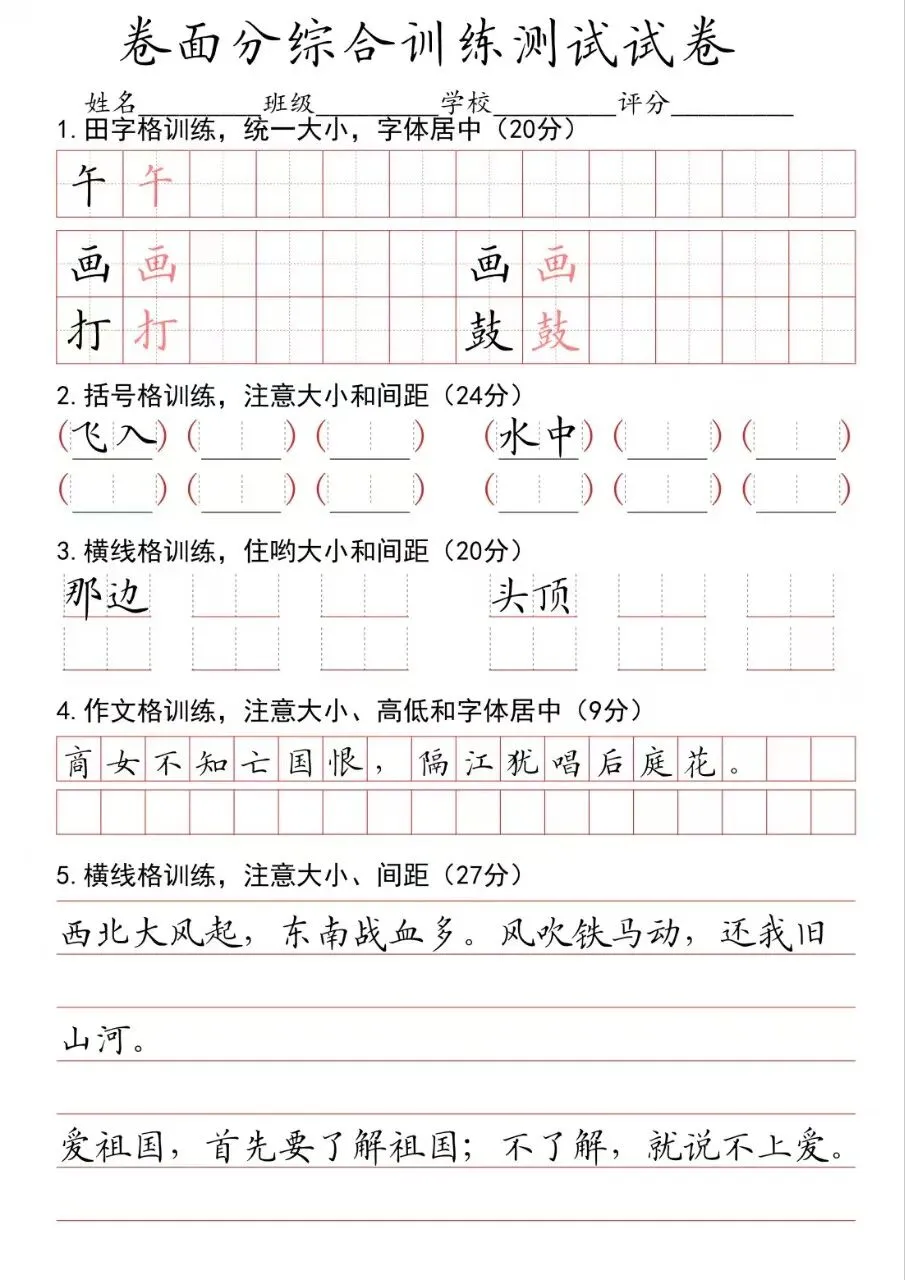 卷面分综合训练测试试卷
姓名________班级________学校________评分________
1.田字格训练，统一大小，字体居中（20分）
午 午
画 画 画 画
打 打 鼓 鼓
2.括号格训练，注意大小和间距（24分）
（飞入）（ ）（ ）（水中）（ ）（ ）
（ ）（ ）（ ）（ ）（ ）（ ）
3.横线格训练，住哟大小和间距（20分）
那边 头顶
4.作文格训练，注意大小、高低和字体居中（9分）
商女不知亡国恨，隔江犹唱后庭花。
5.横线格训练，注意大小、间距（27分）
西北大风起，东南战血多。风吹铁马动，还我旧
山河。
爱祖国，首先要了解祖国；不了解，就说不上爱。